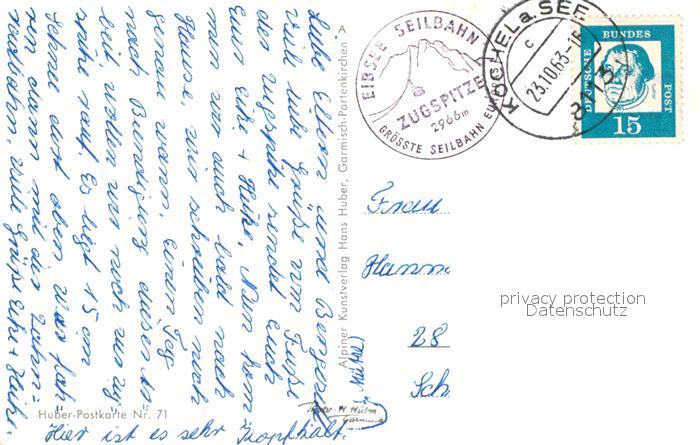 Liebe Eltern und Berger!
Viele liebe Grüße vom Fuße
der Zugspitze sendet Euch
Eure Elke + Heiko. Nun kom
men wir auch bald nach
Hause, wir schreiben noch
genau, wann. Einen Tag
nach Beendigung dieser
wollen wir noch zur Zug
rauf. Es liegt 15 cm
Schnee dort oben. Wir fah
ren dann mit der Zahn=
radbahn. Viele Grüße Elke + Heiko.
Hier ist es sehr
Huber-Postkarte Nr. 71
Alpiner Kunstverlag Hans Huber, Garmisch-Partenkirchen A
EIBSEE SEILBAHN
ZUGSPITZE
2966m
GRÖSSTE SEILBAHN
KOCHEL a. SEE
c
23.10.63-18
DEUTSCHE BUNDES POST
15
Frau
Hanna
28
Sch
privacy protection
Datenschutz